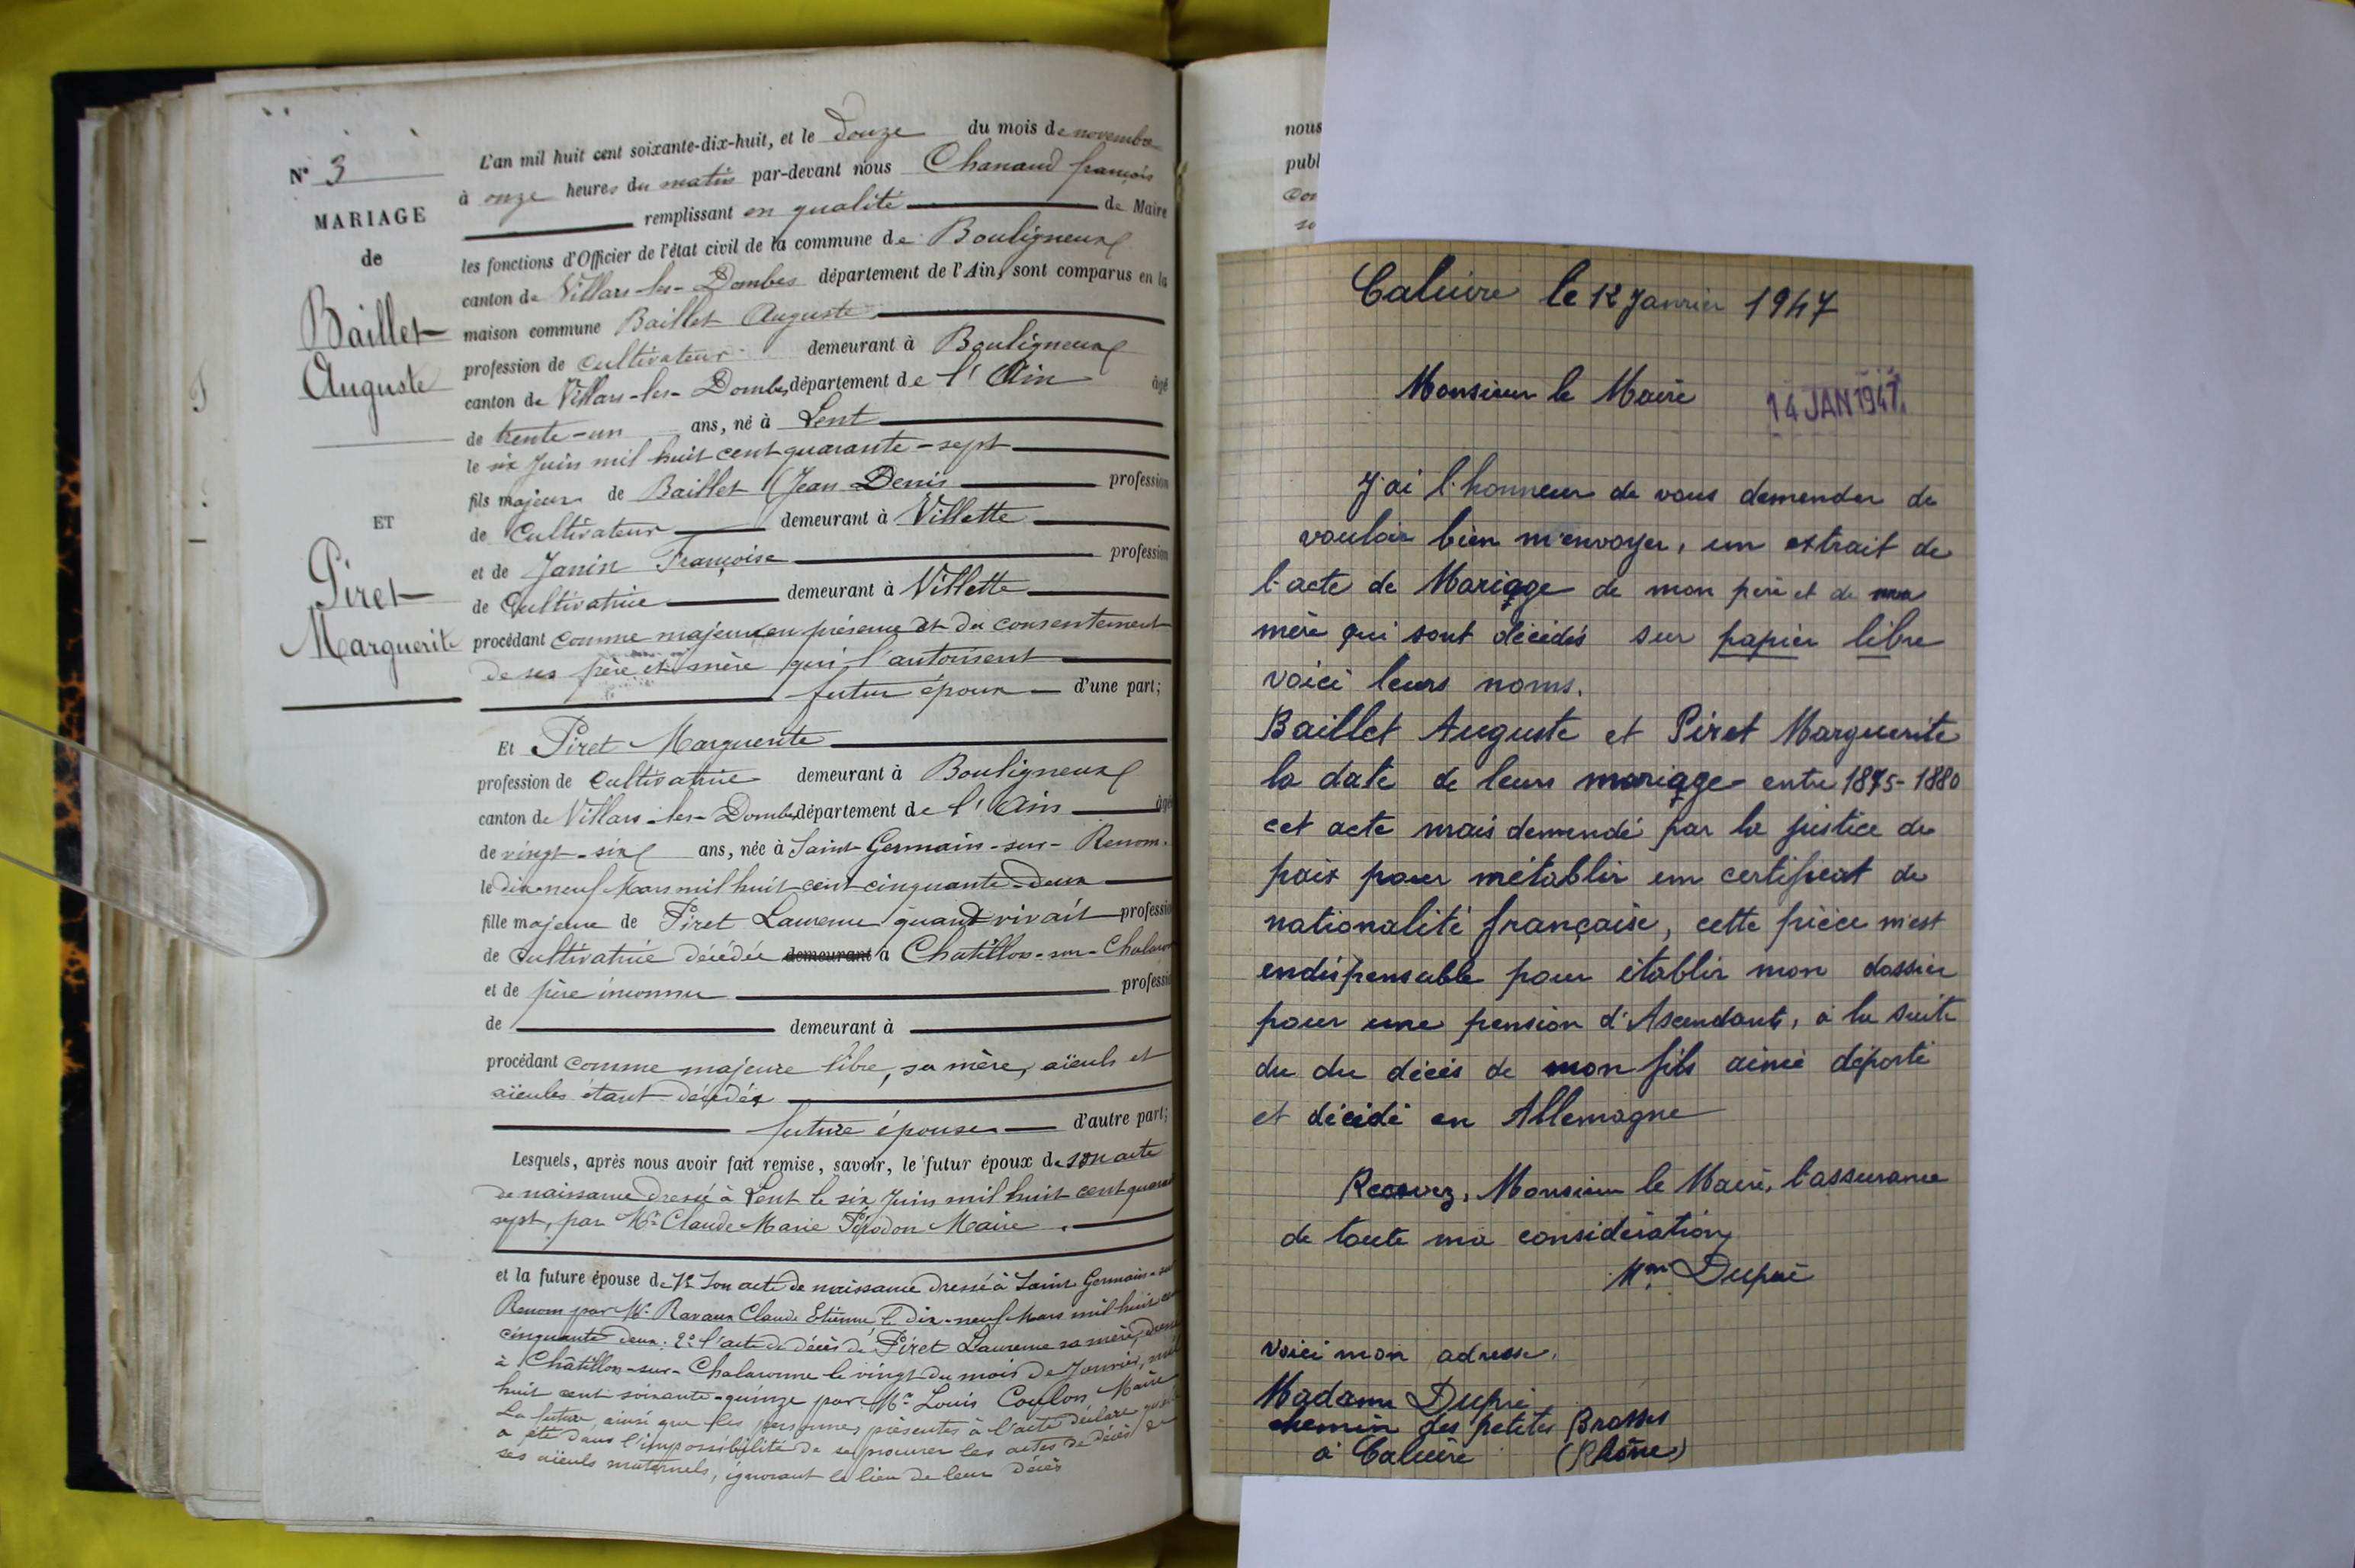 N° 3
MARIAGE
de
Baillet
Auguste
ET
Piret
Marguerite
L'an mil huit cent soixante-dix-huit, et le Douze du mois de novembre
à onze heures du matin par-devant nous Chanaud françois
remplissant en qualité de Maire
les fonctions d'Officier de l'état civil de la commune de Bouligneux
canton de Villars-les-Dombes département de l'Ain, sont comparus en la
maison commune Baillet Auguste
profession de cultivateur demeurant à Bouligneux
canton de Villars-les-Dombes département de l'Ain âgé
de trente-un ans, né à Lent
le six Juin mil huit cent quarante-sept
fils majeur de Baillet Jean Denis profession
de Cultivateur demeurant à Villette
et de Janin Françoise profession
de Cultivatrice demeurant à Villette
procédant comme majeur en présence et du consentement
de ses père et mère qui l'autorisent
futur époux d'une part;
Et Piret Marguerite
profession de Cultivatrice demeurant à Bouligneux
canton de Villars-les-Dombes département de l'Ain âgé
de vingt-six ans, née à Saint-Germain-sur-Renom.
le dix-neuf Mars mil huit cent cinquante-deux
fille majeure de Piret Laurence quand vivait professio
de Cultivatrice décédée demeurant à Chatillon-sur-Chalaron
et de père inconnu professi
de demeurant à
procédant comme majeure libre, sa mère, aïeuls et
aïeules étant décédés
future épouse d'autre part;
Lesquels, après nous avoir fait remise, savoir, le futur époux de son acte
de naissance dressé à Lent le six Juin mil huit cent quarante
sept, par Mr Claude Marie Maire.
et la future épouse de 1° Son acte de naissance dressé à Saint Germain-sur
Renom par Mr Ravaux Claude Etienne le Dix-neuf Mars mil huit cent
cinquante deux: 2° l'acte de décès de Piret Laurence sa mère, dressé
à Châtillon-sur-Chalaronne le vingt du mois de Janvier, mil
huit cent soixante-quinze par Mr Louis Coulon, Maire
La future, ainsi que les personnes présentes à l'acte déclare qu'il
a été dans l'impossibilité de se procurer les actes de décès de
ses aïeuls maternels, ignorant le lieu de leur décès
nous
publ
Caluire le 12 Janvier 1947
Monsieur le Maire
14 JAN 1947
J'ai l'honneur de vous demender de
vouloir bien m'envoyer, un extrait de
l'acte de Mariage de mon père et de ma
mère qui sont décédés sur papier libre
voici leurs noms.
Baillet Auguste et Piret Marguerite
la date de leurs mariage entre 1875-1880
cet acte mais demendé par la justice de
paix pour m'établir un certificat de
nationalité française, cette pièce m'est
endispensable pour établir mon dossier
pour une pension d'Asendants, à la suite
du du décès de mon fils ainé déporté
et décédé en Allemagne
Recevez, Monsieur le Maire, l'assurance
de toute ma considération
Mme Dupré
Voici mon adresse.
Madame Dupré
chemin des petites Brosses
à Caluire (Rhône)